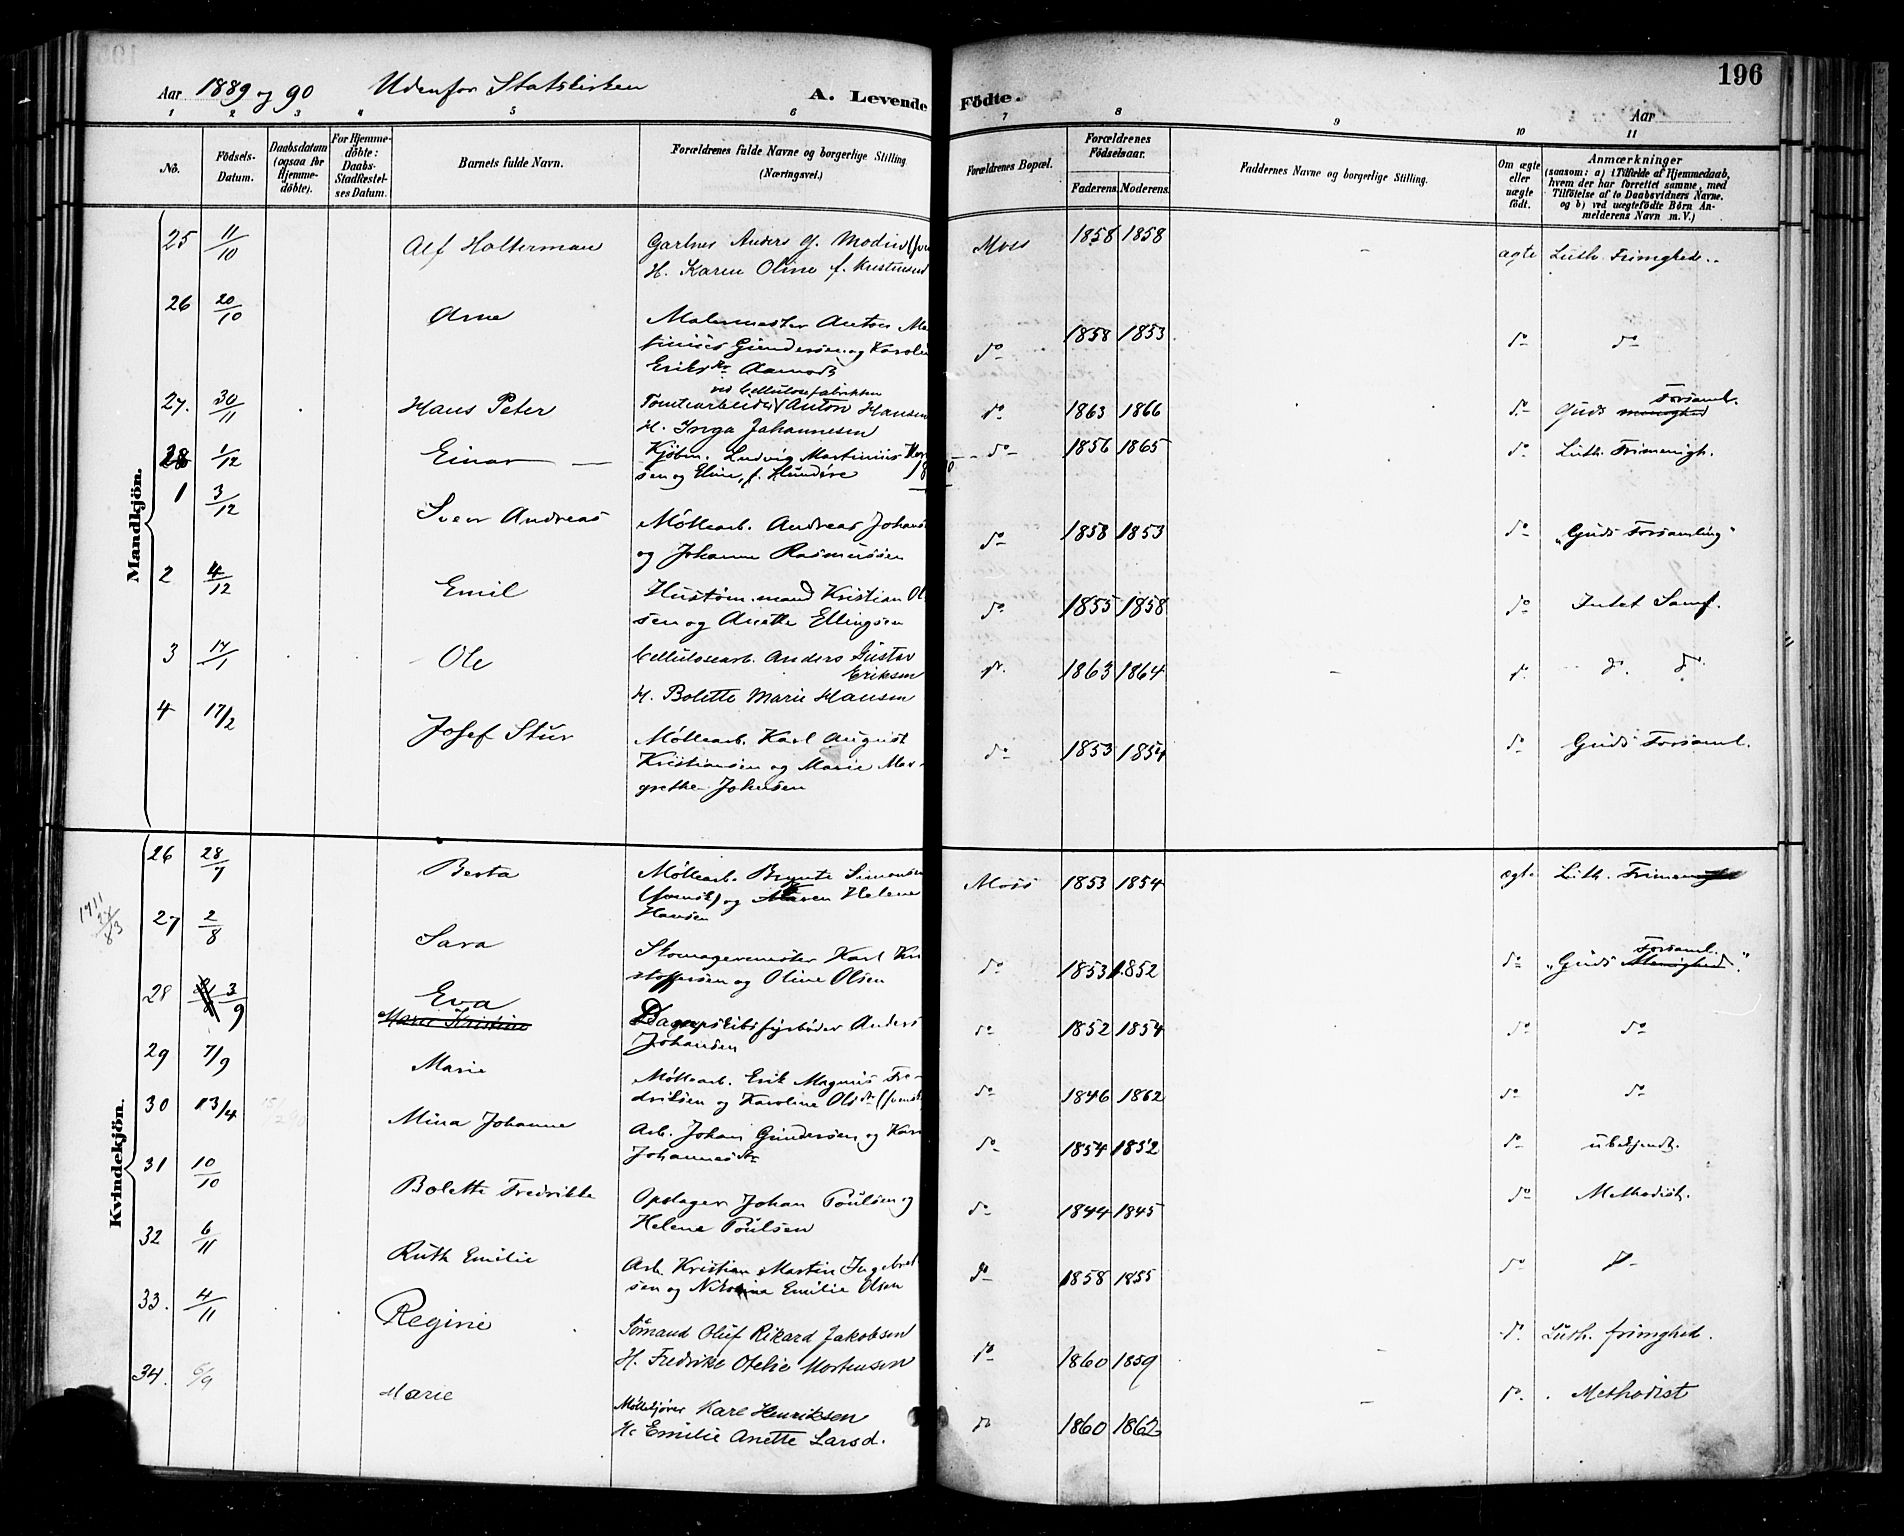 Aar 1889 og 90 Udenfor Statskirken A. Levende Fødte. 196
Aar
1 2 3 4 5 6 7 8 9 10 11
No. Fødsels-Datum. Daabsdatum (ogsaa for Hjemmedøbte). For Hjemmedøbte: Daabs-Stadfæstelses Datum. Barnets fulde Navn. Forældrenes fulde Navne og borgerlige Stilling (Næringsvei.) Forældrenes Bopæl. Forældrenes Fødselsaar. Faderens. Moderens. Faddernes Navne og borgerlige Stilling. Om ægte eller uægte født. Anmærkninger (saasom: a) i Tilfælde af Hjemmedaab, hvem der har forrettet samme, med Tilføielse af to Daabsvidners Navne. og b) ved uægtefødte Børn Anmelderens Navn m. V.)
Mandkjön.
25 11/10 Alf Holterman Gartner Anders G. Modin
H. Karen Oline f. Kristensen Moss 1858 1858 ægte Luth. Frimghed.
26 20/10 Arne Malermester Anton Ma-
tinius Gundersen og Karoli
Eriksdr Aamodt do 1858 1853 do do
27. 30/11 Hans Peter ved Cellulosefabrikken
Tomtearbeider Anton Hansen
H. Inga Johannesen do 1863 1866 do Guds Forsaml.
28 1/12 Einar Kjøbm. Ludvig Martinius
sen og Eline, f. Hundøre do 1856 1865 do Luth. Frimenigh.
1 3/12 Sven Andreas Møllearb. Andreas Johans
og Johanne Rasmussen do 1858 1853 do "Guds Forsamling"
2 4/12 Emil Hustøm.mand Kristian Ol
sen og Anette Ellingsen do 1855 1858 do Intet Samf.
3 17/1 Ole Cellulosearb. Anders Gustav
Eriksen
H. Bolette Marie Hansen do 1863 1864 do do do
4 17/2 Josef Stur Møllearb. Karl August
Kristiansen og Marie Mar-
grethe Johnsen do 1853 1854 do Guds Forsaml.
Kvindekjön.
26 28/7 Berta Møllearb. Brynte Simonsen
(svensk) og Karen Helene
Hansen Moss 1853 1854 ægte Luth. Frimenighe
27 2/8 Sara Skomagermester Karl Kri
stoffersen og Oline Olsen do 1853 1852 do "Guds Forsaml."
28 3/9 Eva
Marie Kristine Dampskibsfyrbøder Anders
Johansen do 1852 1854 do do
29 7/9 Marie Møllearb. Erik Magnus Fre-
driksen og Karoline Olsdr (svensk do 1846 1862 do do
30 13/4 Mina Johanne Arb. Johan Gundersen og Kar
Johannesdr do 1854 1852 do ubekjendt.
31 10/10 Bolette Fredrikke Opdager Johan Poulsen og
Helene Poulsen do 1844 1845 do Methodist.
32 6/11 Ruth Emilie Arb. Kristian Martin Ingebret
sen og Nikoline Emilie Olsen do 1858 1855 do do
33. 4/11 Regine Sømand Oluf Rikard Jakobsen
H. Fredrike Otelie Mortensen do 1860 1859 do Luth. frimghed.
34. 6/9 Marie Møllekjører Karl Henriksen
H. Emilie Anette Larsd. do 1860 1862 do Methodist